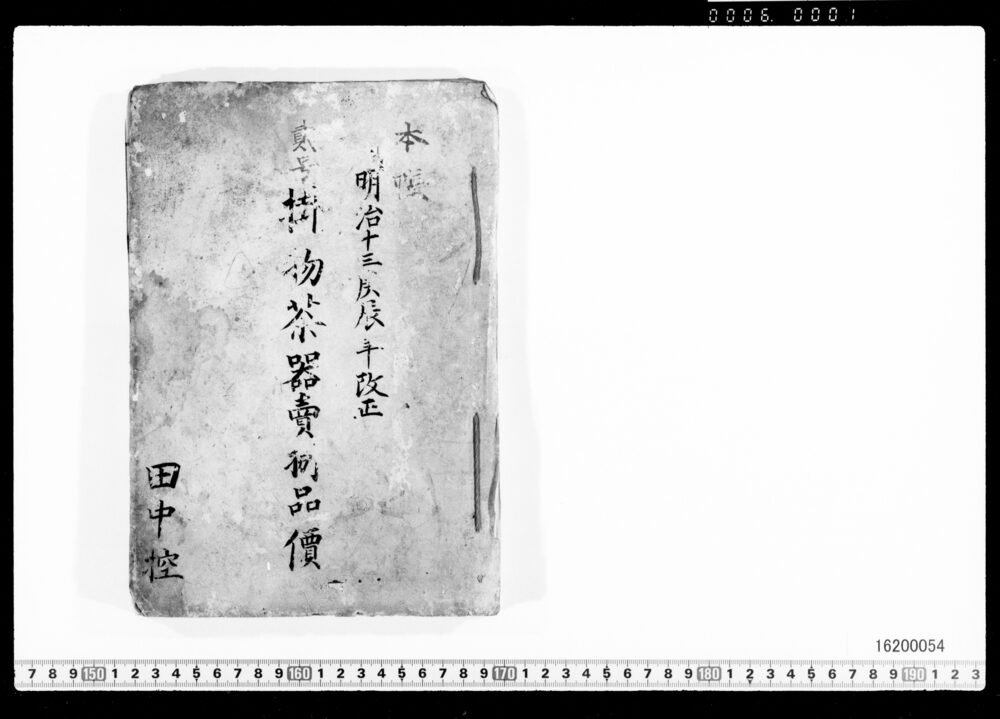 0006. 0001
本帳
明治十三庚辰年改正
貳号
掛物茶器賣物品價
田中控
16200054
7 8 9 150 1 2 3 4 5 6 7 8 9 160 1 2 3 4 5 6 7 8 9 170 1 2 3 4 5 6 7 8 9 180 1 2 3 4 5 6 7 8 9 190 1 2 3